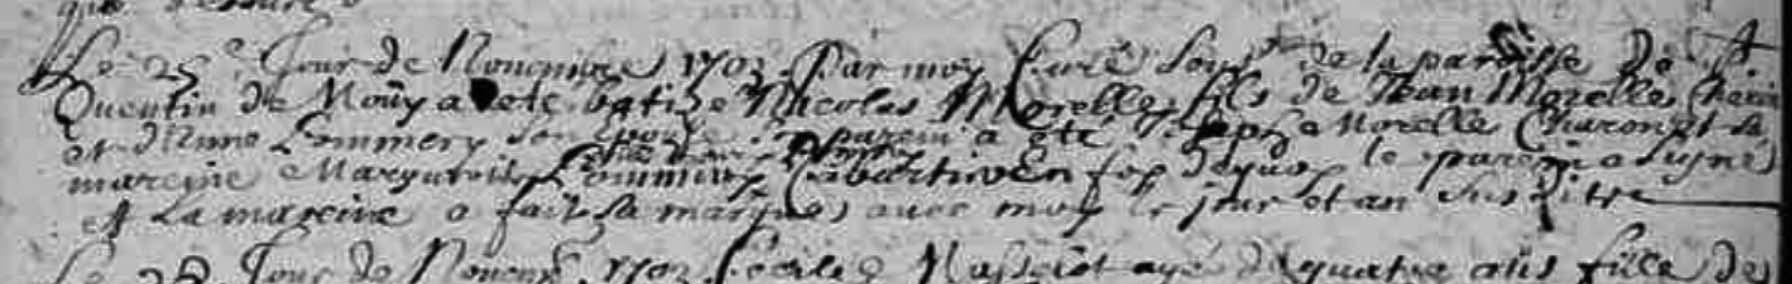 Le 25e Jour de Novembre 1703 Par moy Curé sous de la paroisse de St
Quentin de Mouy a ete batize Nicolas Morelle fils de Jean Morelle
et d'Anne Lommery son epouse Son parein a été Joseph Morelle Charon et sa
mareine Marguerite Lommery en foy dequoy le parein a signé
et La mareine a fait sa marque avec moy le jour et an susdits
Le 28 Jour de Novemb. 1703 Cecile agé de quatre ans fille de